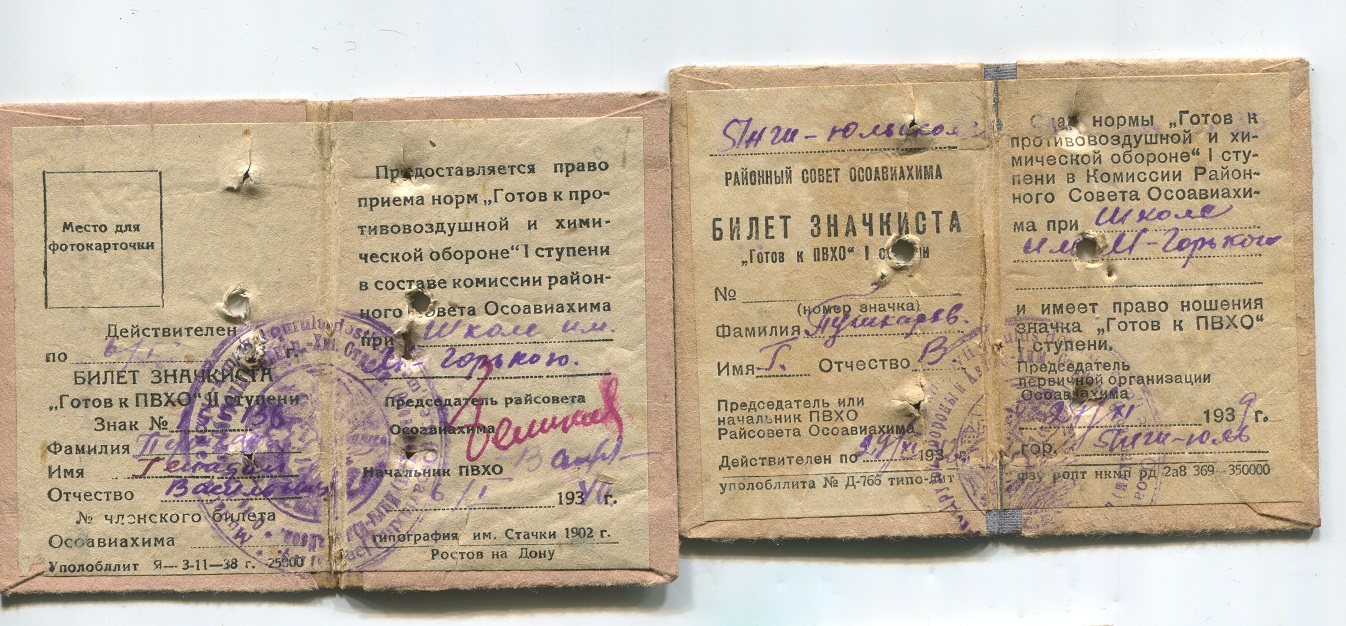 Место для
фотокарточки
Действителен
по 6/I г.
БИЛЕТ ЗНАЧКИСТА
„Готов к ПВХО" II ступени
Знак № 136
Фамилия
Имя Генадий
Отчество
№ членского билета
Осоавиахима
Уполобллит Я—3-11—38 г. 25000
Предоставляется право
приема норм „Готов к про-
тивовоздушной и хими-
ческой обороне" I ступени
в составе комиссии район-
ного Совета Осоавиахима
при Школе им.
Горького.
Председатель райсовета
Осоавиахима
Начальник ПВХО
6/I 193 г.
типография им. Стачки 1902 г.
Ростов на Дону
Янги-юльский
РАЙОННЫЙ СОВЕТ ОСОАВИАХИМА
БИЛЕТ ЗНАЧКИСТА
„Готов к ПВХО" I ступени
№
(номер значка)
Фамилия Пушкарев.
Имя Г. Отчество В
Председатель или
начальник ПВХО
Райсовета Осоавиахима
Действителен по 29/XI 193 г.
уполобллита № Д-766 типо-лит
Сдал нормы „Готов к
противовоздушной и хи-
мической обороне" I сту-
пени в Комиссии Район-
ного Совета Осоавиахи-
ма при Школе
им. М-Горького
и имеет право ношения
значка „Готов к ПВХО"
I ступени.
Председатель
первичной организации
Осоавиахима
29/XI 1939 г.
гор. Янги-юль
фзу ропт нкмп рд 2а8 369—350000